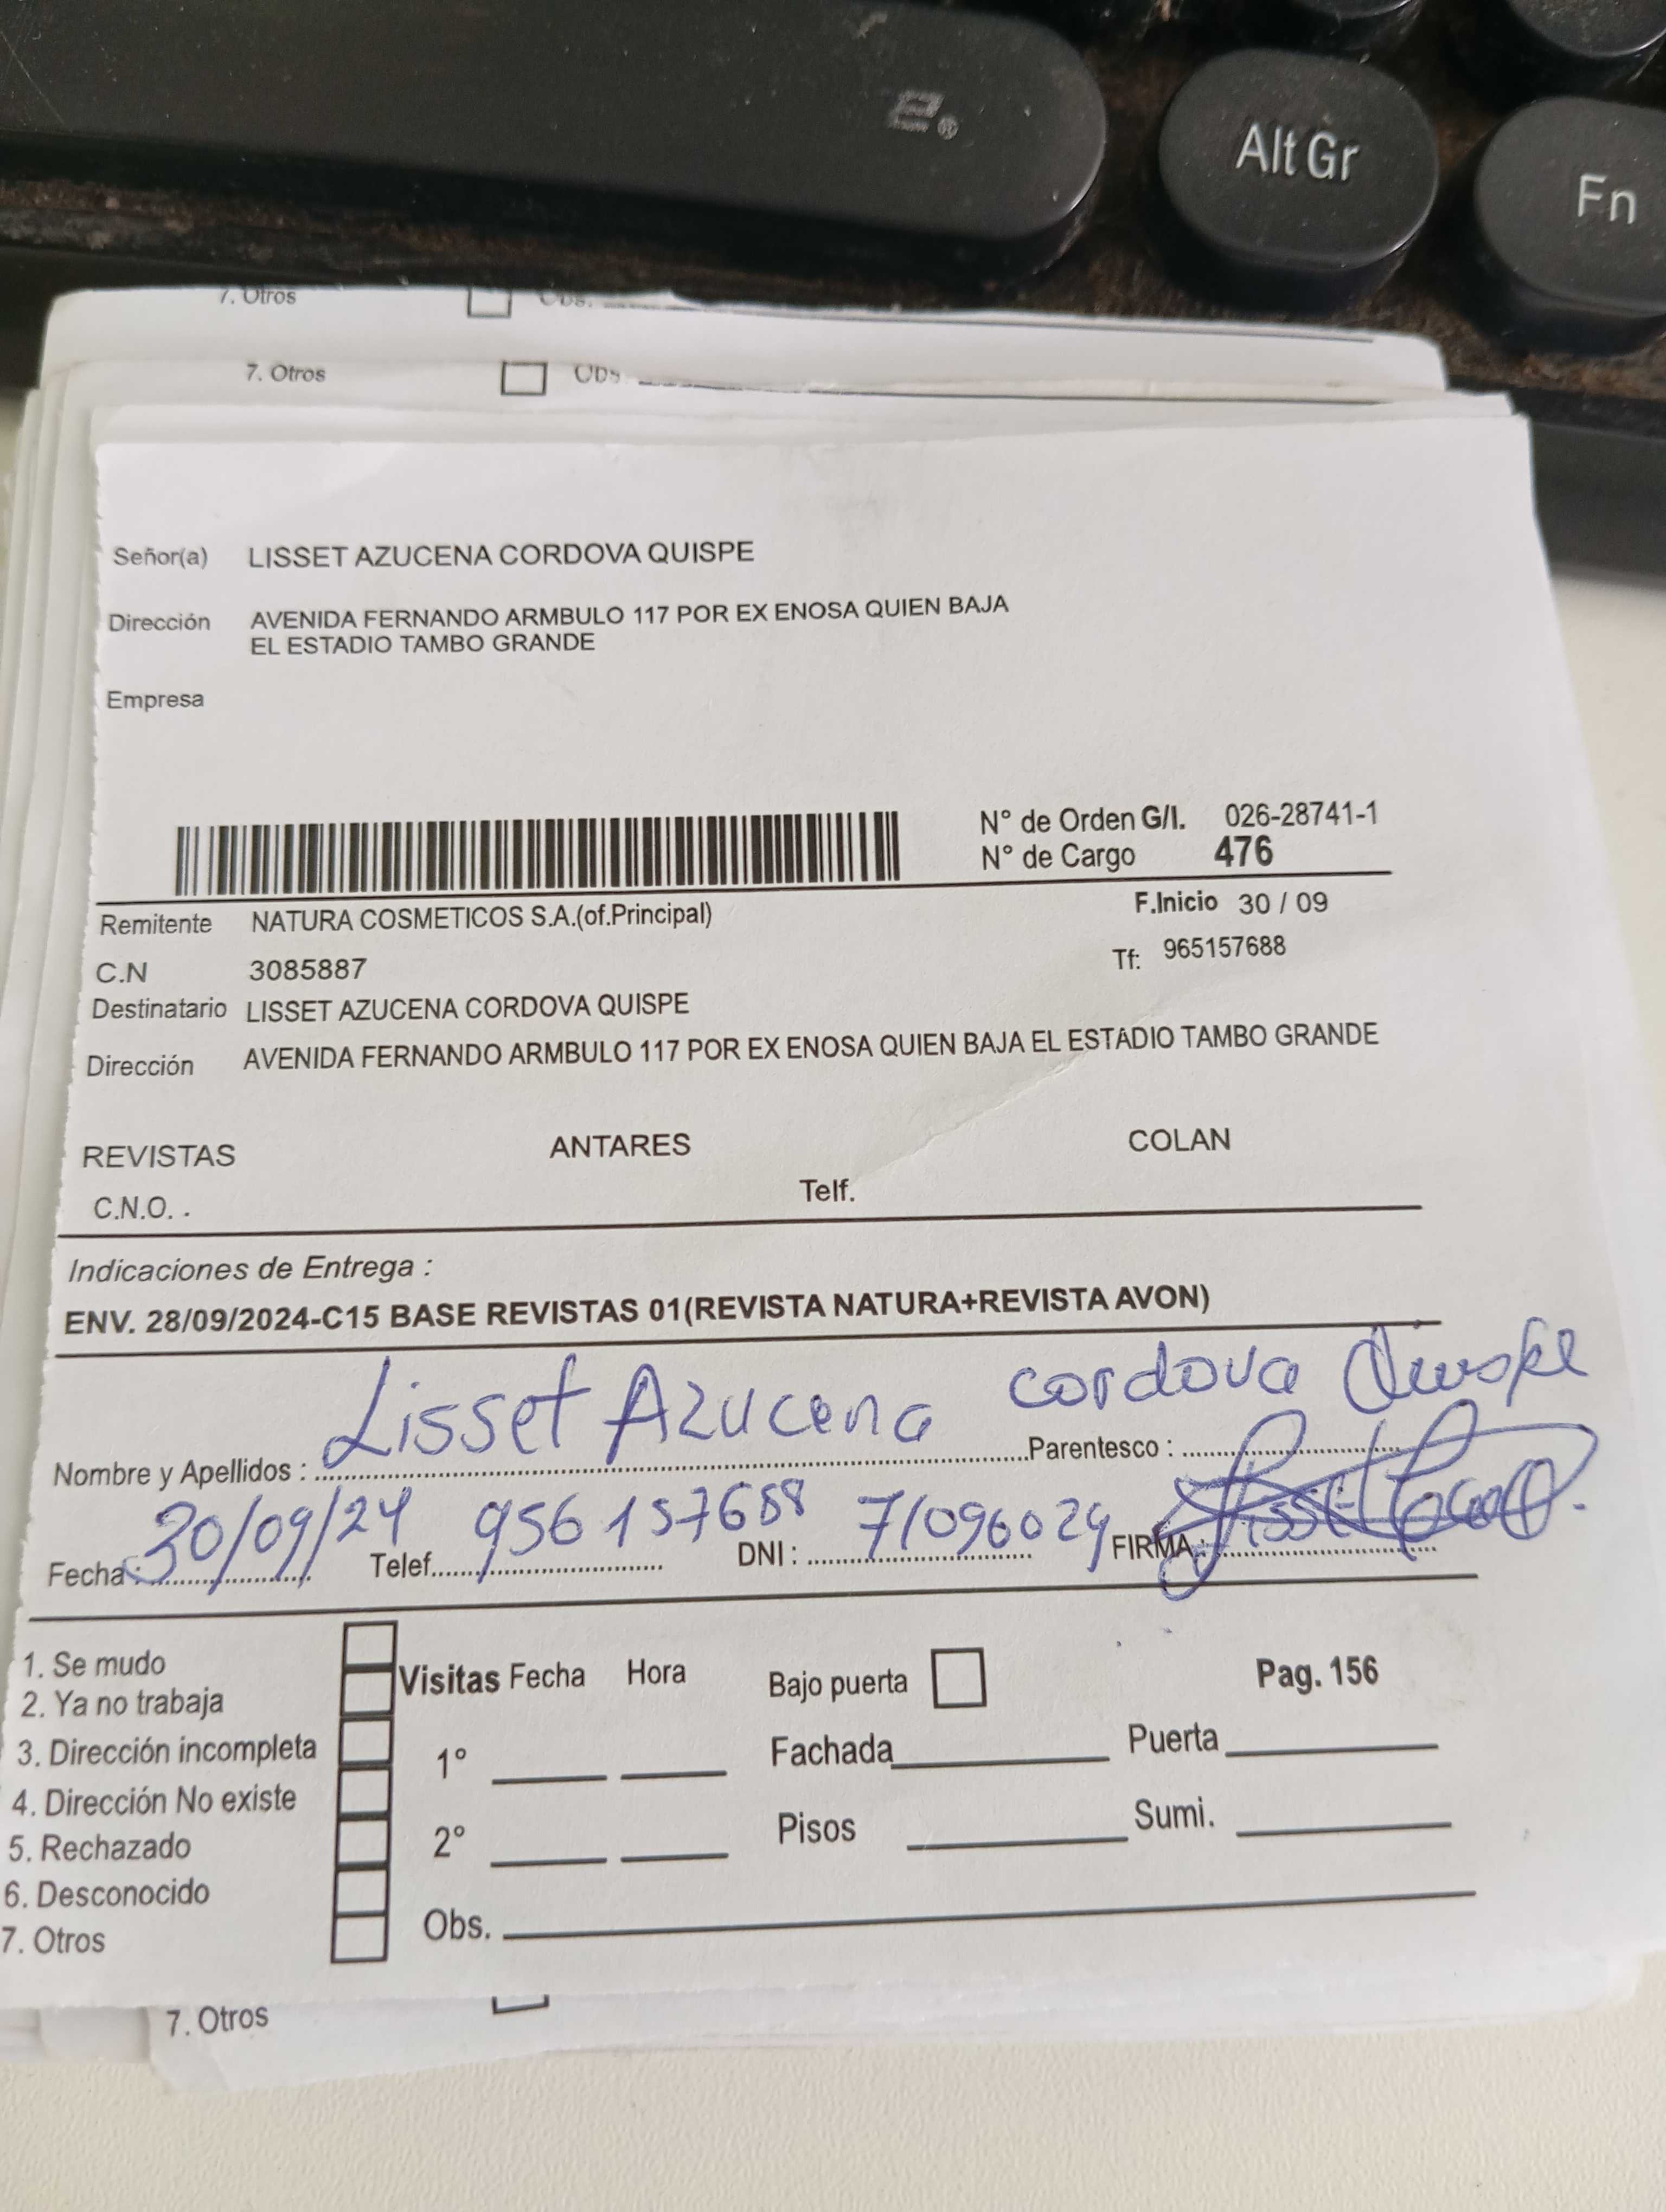 Alt Gr
Fn
7. Otros Obs.
7. Otros Obs.
Señor(a) LISSET AZUCENA CORDOVA QUISPE
Dirección AVENIDA FERNANDO ARMBULO 117 POR EX ENOSA QUIEN BAJA
EL ESTADIO TAMBO GRANDE
Empresa
N° de Orden G/I. 026-28741-1
N° de Cargo 476
Remitente NATURA COSMETICOS S.A.(of.Principal) F.Inicio 30 / 09
C.N 3085887 Tf: 965157688
Destinatario LISSET AZUCENA CORDOVA QUISPE
Dirección AVENIDA FERNANDO ARMBULO 117 POR EX ENOSA QUIEN BAJA EL ESTADIO TAMBO GRANDE
REVISTAS ANTARES COLAN
C.N.O. . Telf.
Indicaciones de Entrega :
ENV. 28/09/2024-C15 BASE REVISTAS 01(REVISTA NATURA+REVISTA AVON)
Nombre y Apellidos : Lisset Azucena cordova Quispe Parentesco :
Fecha : 30/09/24 Telef. 956 157688 DNI : 71096029 FIRMA :
1. Se mudo
2. Ya no trabaja
3. Dirección incompleta
4. Dirección No existe
5. Rechazado
6. Desconocido
7. Otros
Visitas Fecha Hora Bajo puerta Pag. 156
1° Fachada Puerta
2° Pisos Sumi.
Obs.
7. Otros